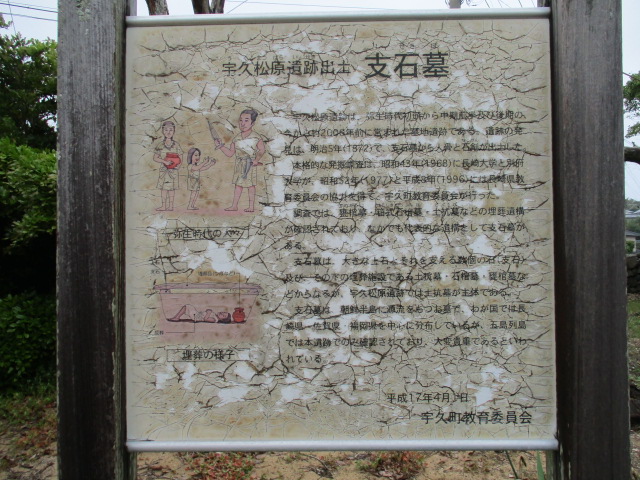 宇久松原遺跡出土 支石墓
宇久松原遺跡は、弥生時代初頭から中期前半及び後期の
今から約2000年前に営まれた墓地遺跡である。遺跡の発
見は、明治5年(1872)で、支石墓から人骨と石剣が出土した
本格的な発掘調査は、昭和43年(1968)に長崎大学と別府
大学が、昭和52年(1977)と平成8年(1996)には長崎県教
育委員会の協力を得て、宇久町教育委員会が行った。
調査では、甕棺墓・箱式石棺墓・土抗墓などの埋葬遺構
が確認されており、なかでも代表的な遺構として支石墓が
ある。
支石墓は、大きな上石とそれを支える数個の石(支石)
及び、その下の埋葬施設である土抗墓・石棺墓・甕棺墓な
どからなるが、宇久松原遺跡では土抗墓が主体である。
支石墓は、朝鮮半島に源流をもつお墓で、わが国では長
崎県・佐賀県・福岡県を中心に分布しているが、五島列島
では本遺跡でのみ確認されており、大変貴重であるといわ
れている。
弥生時代の人々
埋葬の様子
平成17年4月1日
宇久町教育委員会